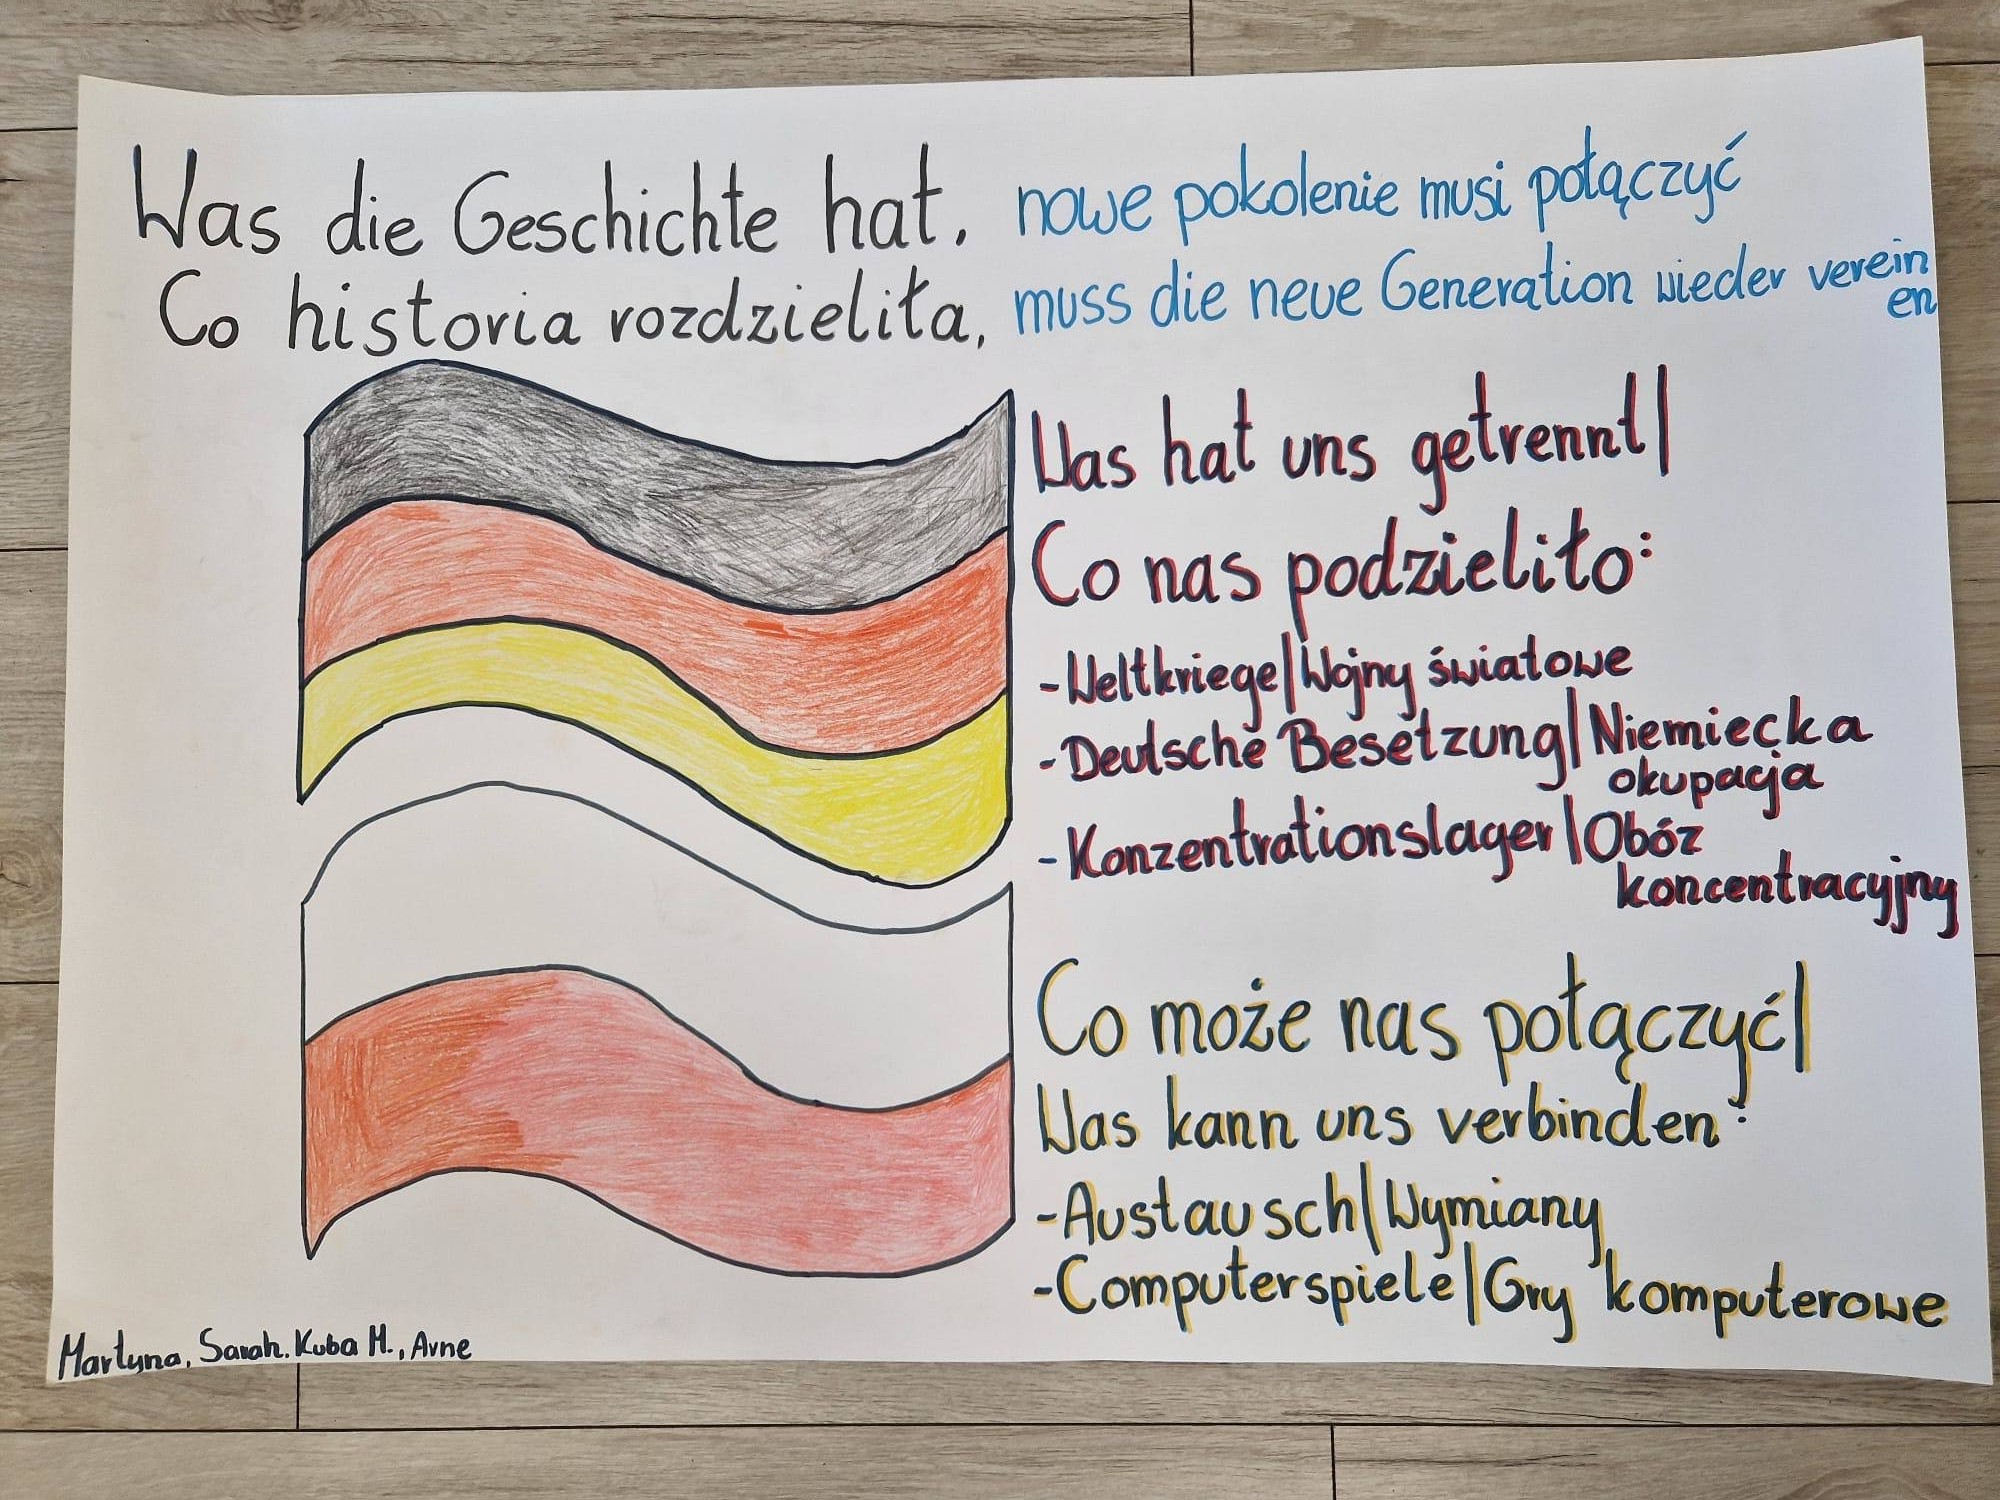 Was die Geschichte hat,
Co historia rozdzieliła,
nowe pokolenie musi połączyć
muss die neue Generation wieder verein
en
Was hat uns getrennt|
Co nas podzieliło:
-Weltkriege|Wojny światowe
-Deutsche Besetzung|Niemiecka
okupacja
-Konzentrationslager|Obóz
koncentracyjny
Co może nas połączyć|
Was kann uns verbinden:
-Austausch|Wymiany
-Computerspiele|Gry komputerowe
Martyna, Sarah, Kuba M., Arne